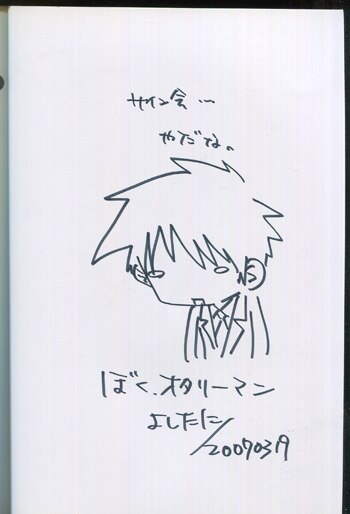 サイン会…
やだな。
ぼく、オタリーマン
よしたに
/20070317